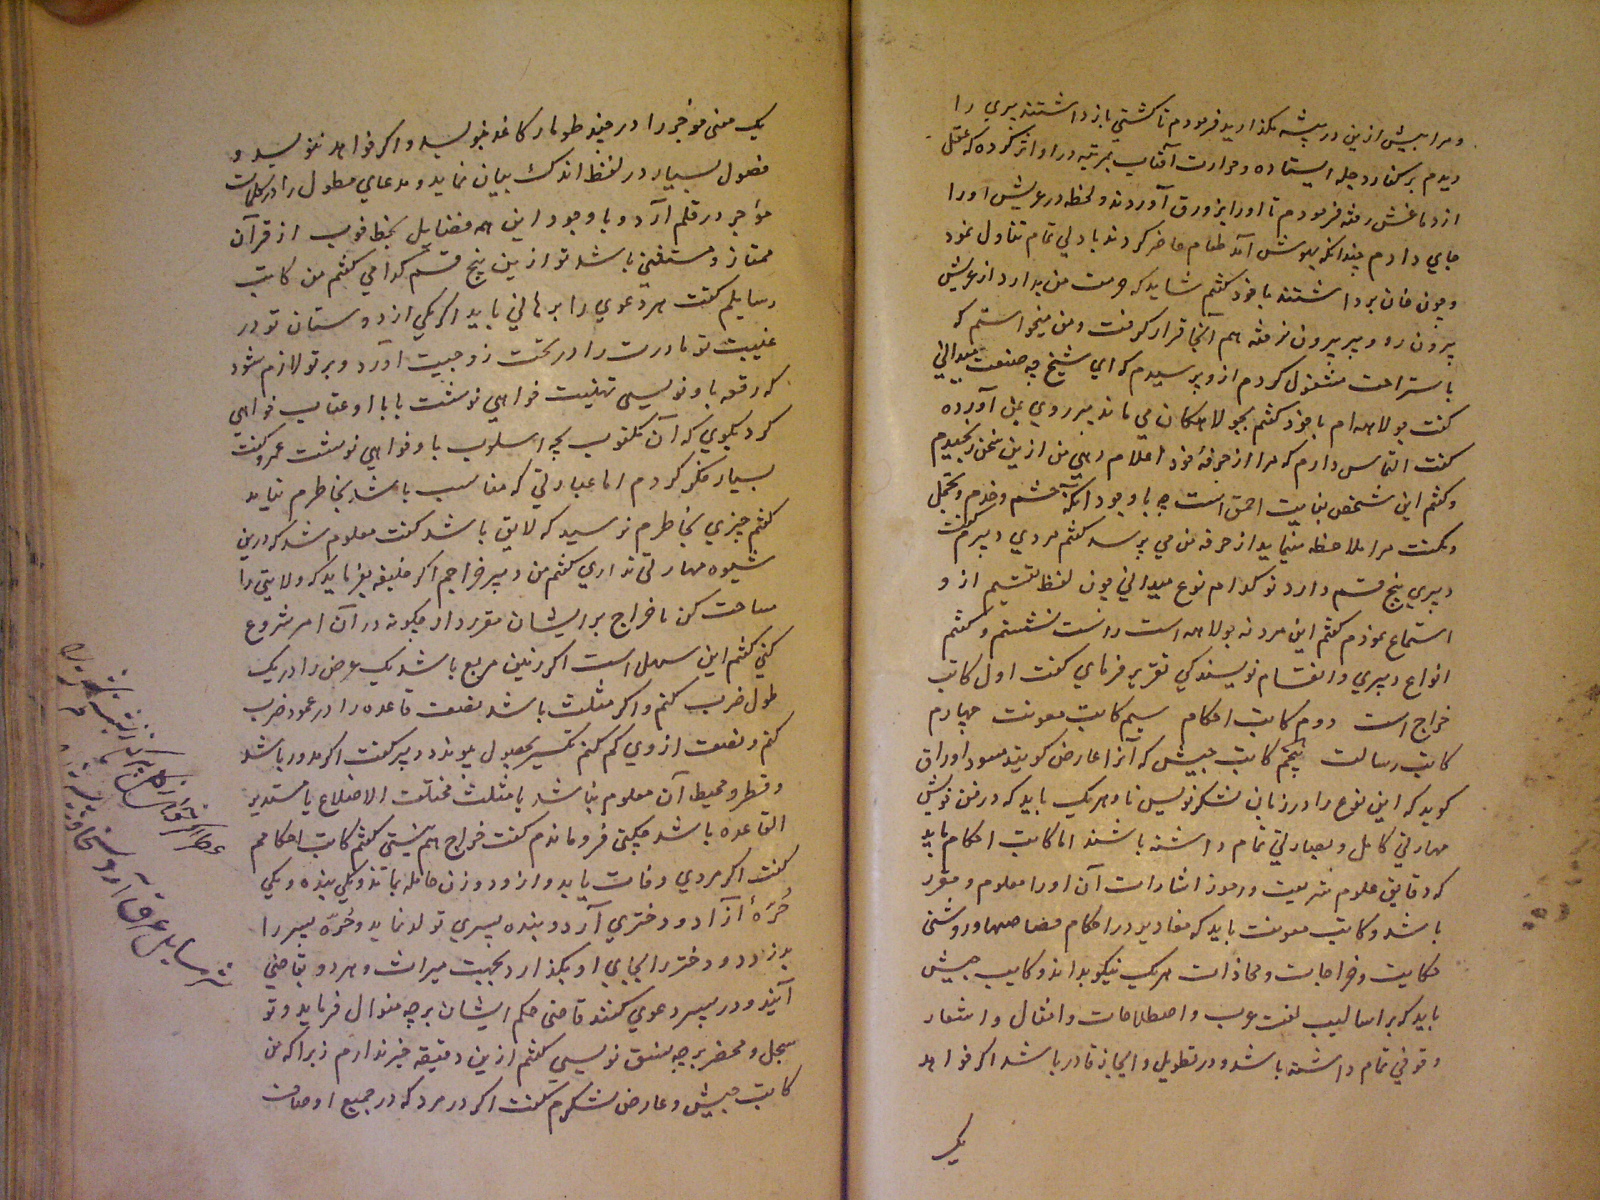 و مرا بیش ازین در بیشه مگذارید فرمودم تا کشتی باز داشتند پیری را
دیدم بر کنار دجله ایستاده و حرارت آفتاب بمرتبه در او اثر کرده که عقل
از دماغش رفته فرمودم تا او را بزورق آوردند و لحظه در عریش او را
جای دادم چندانکه بهوش آمد طعام حاضر کردند با دلی تمام تناول نمود
و چون خان برداشتند با خود گفتم شاید که حرمت من بدارد از عریش
بیرون رود پیر بیرون نرفته هم آنجا قرار گرفت و من میخواستم که
باستراحت مشغول گردم ازو پرسیدم که ای شیخ چه صنعت میدانی
گفت جولاهه ام با خود گفتم بجولاهکان می ماند پیر روی بمن آورده
گفت التماس دارم که مرا از حرفهٔ خود اعلام دهی من ازین سخن رنجیدم
و گفتم این شخص بغایت احمق است چه با وجود آنکه حشم و خدم و تجمل
و مکنت مرا ملاحظه مینماید از حرفه من می پرسد گفتم مردی دبیرم گفت
دبیری پنج قسم دارد تو کدام نوع میدانی چون لفظ تقسیم ازو
استماع نمودم گفتم این مرد نه جولاهه است راست نشستم و گفتم
انواع دبیری و اقسام نویسندگی تقریر فرمای گفت اول کاتب
خراج است دوم کاتب احکام سیم کاتب معونت چهارم
کاتب رسالت پنجم کاتب جیش که آنرا عارض گویند مسود اوراق
گوید که این نوع را در زبان لشکرنویس نامند هریک باید که در فن خویش
مهارتی کامل و بصارتی تمام داشته باشند اما کاتب احکام باید
که دقایق علوم شریعت و رموز اشارات آن او را معلوم و مقرر
باشد و کاتب معونت باید که مقادیر در احکام قصاصها و روشنی
حکایت و جراحات و محاذات هریک نیکو بداند و کاتب جیش
باید که بر اسالیب لغت عرب و اصطلاحات و امثال و اشعار
وقوفی تمام داشته باشد و در تطویل و ایجاز قادر باشد اگر خواهد
یک
یک معنی موجز را در چند طومار کاغذ بنویسد و اگر خواهد بنویسد و
فصول بسیار در لفظ اندک بیان نماید و مدعای مطول را در کلمات
موجز در قلم آرد و با وجود این همه فضایل بخط خوب از قرآن
ممتاز و مستثنی باشد تو ازین پنج قسم کدامی گفتم من کاتب
رسایلم گفت هر دعوی را برهانی باید اگر یکی از دوستان تو در
غیبت تو مادرت را در تحت زوجیت آورد و بر تو لازم شود
که رقعه باو نویسی تهنیت خواهی نوشت یا با او عتاب خواهی
کرد بگوی که آن مکتوب بچه اسلوب باو خواهی نوشت عمرو گفت
بسیار فکر کردم اما عبارتی که مناسب باشد بخاطرم نیامد
گفتم چیزی بخاطرم نرسید که لایق باشد گفت معلوم شد که درین
شیوه مهارتی نداری گفتم من دبیر خراجم اگر خلیفه بفرماید که ولایتی را
مساحت کن تا خراج بر ایشان مقرر دارد چگونه در آن امر شروع
کنی گفتم این سهل است اگر زمین مربع باشد یک عرض را در یک
طول ضرب کنم و اگر مثلث باشد نصف قاعده را در عمود ضرب
کنم و نصف از وی کم کنم تکسیر بحصول پیوندد پیر گفت اگر مدور باشد
و قطر و محیط آن معلوم نباشد یا مثلث مختلف الاضلاع یا مستدیر
القاعده باشد چکنی فروماندم گفت خراج هم نیستی گفتم کاتب احکامم
گفت اگر مردی وفات یابد و ازو دو زن حامله بماند یکی بنده و یکی
حُرّهٔ آزاد و دختری آرد و بنده پسری تولد نماید و حُرّه پسر را
بدزدد و دختر را بجای او بگذارد بجهت میراث و هر دو بقاضی
آیند و در پسر دعوی کنند قاضی حکم ایشان بر چه منوال فرماید و تو
سجل و محضر بر چه نسق نویسی گفتم ازین دقیقه خبر ندارم زیرا که من
کاتب جیش و عارض لشکرم گفت اگر دو مرد که در جمیع اوصاف